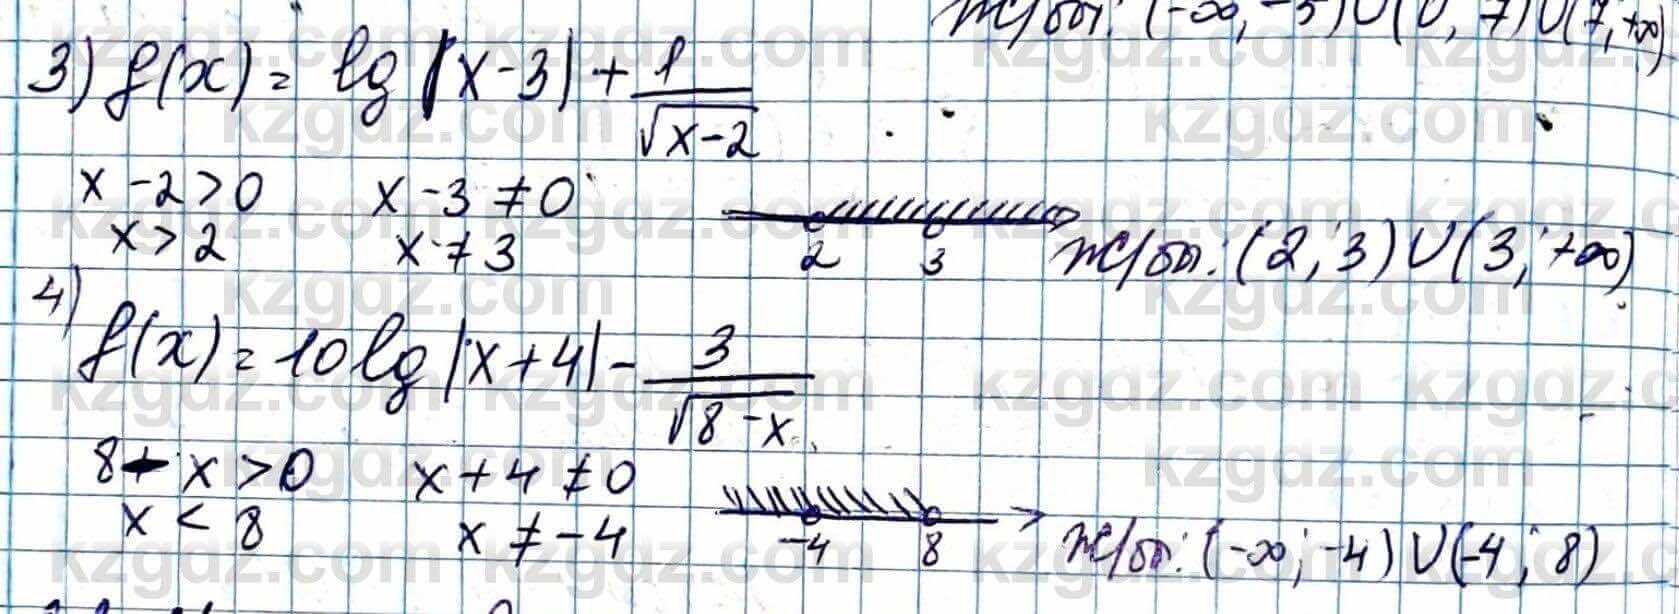 Ж/бы: (-∞; -5)∪(0; 7)∪(7; +∞)
3) f(x) = lg |x-3| + 1/√(x-2)
x-2>0 x-3≠0
x>2 x≠3
2 3 Ж/бы: (2; 3)∪(3; +∞)
4)
f(x) = 10 lg |x+4| - 3/√(8-x)
8-x>0 x+4≠0
x<8 x≠-4
-4 8 Ж/бы: (-∞; -4)∪(-4; 8)
kzgdz.com